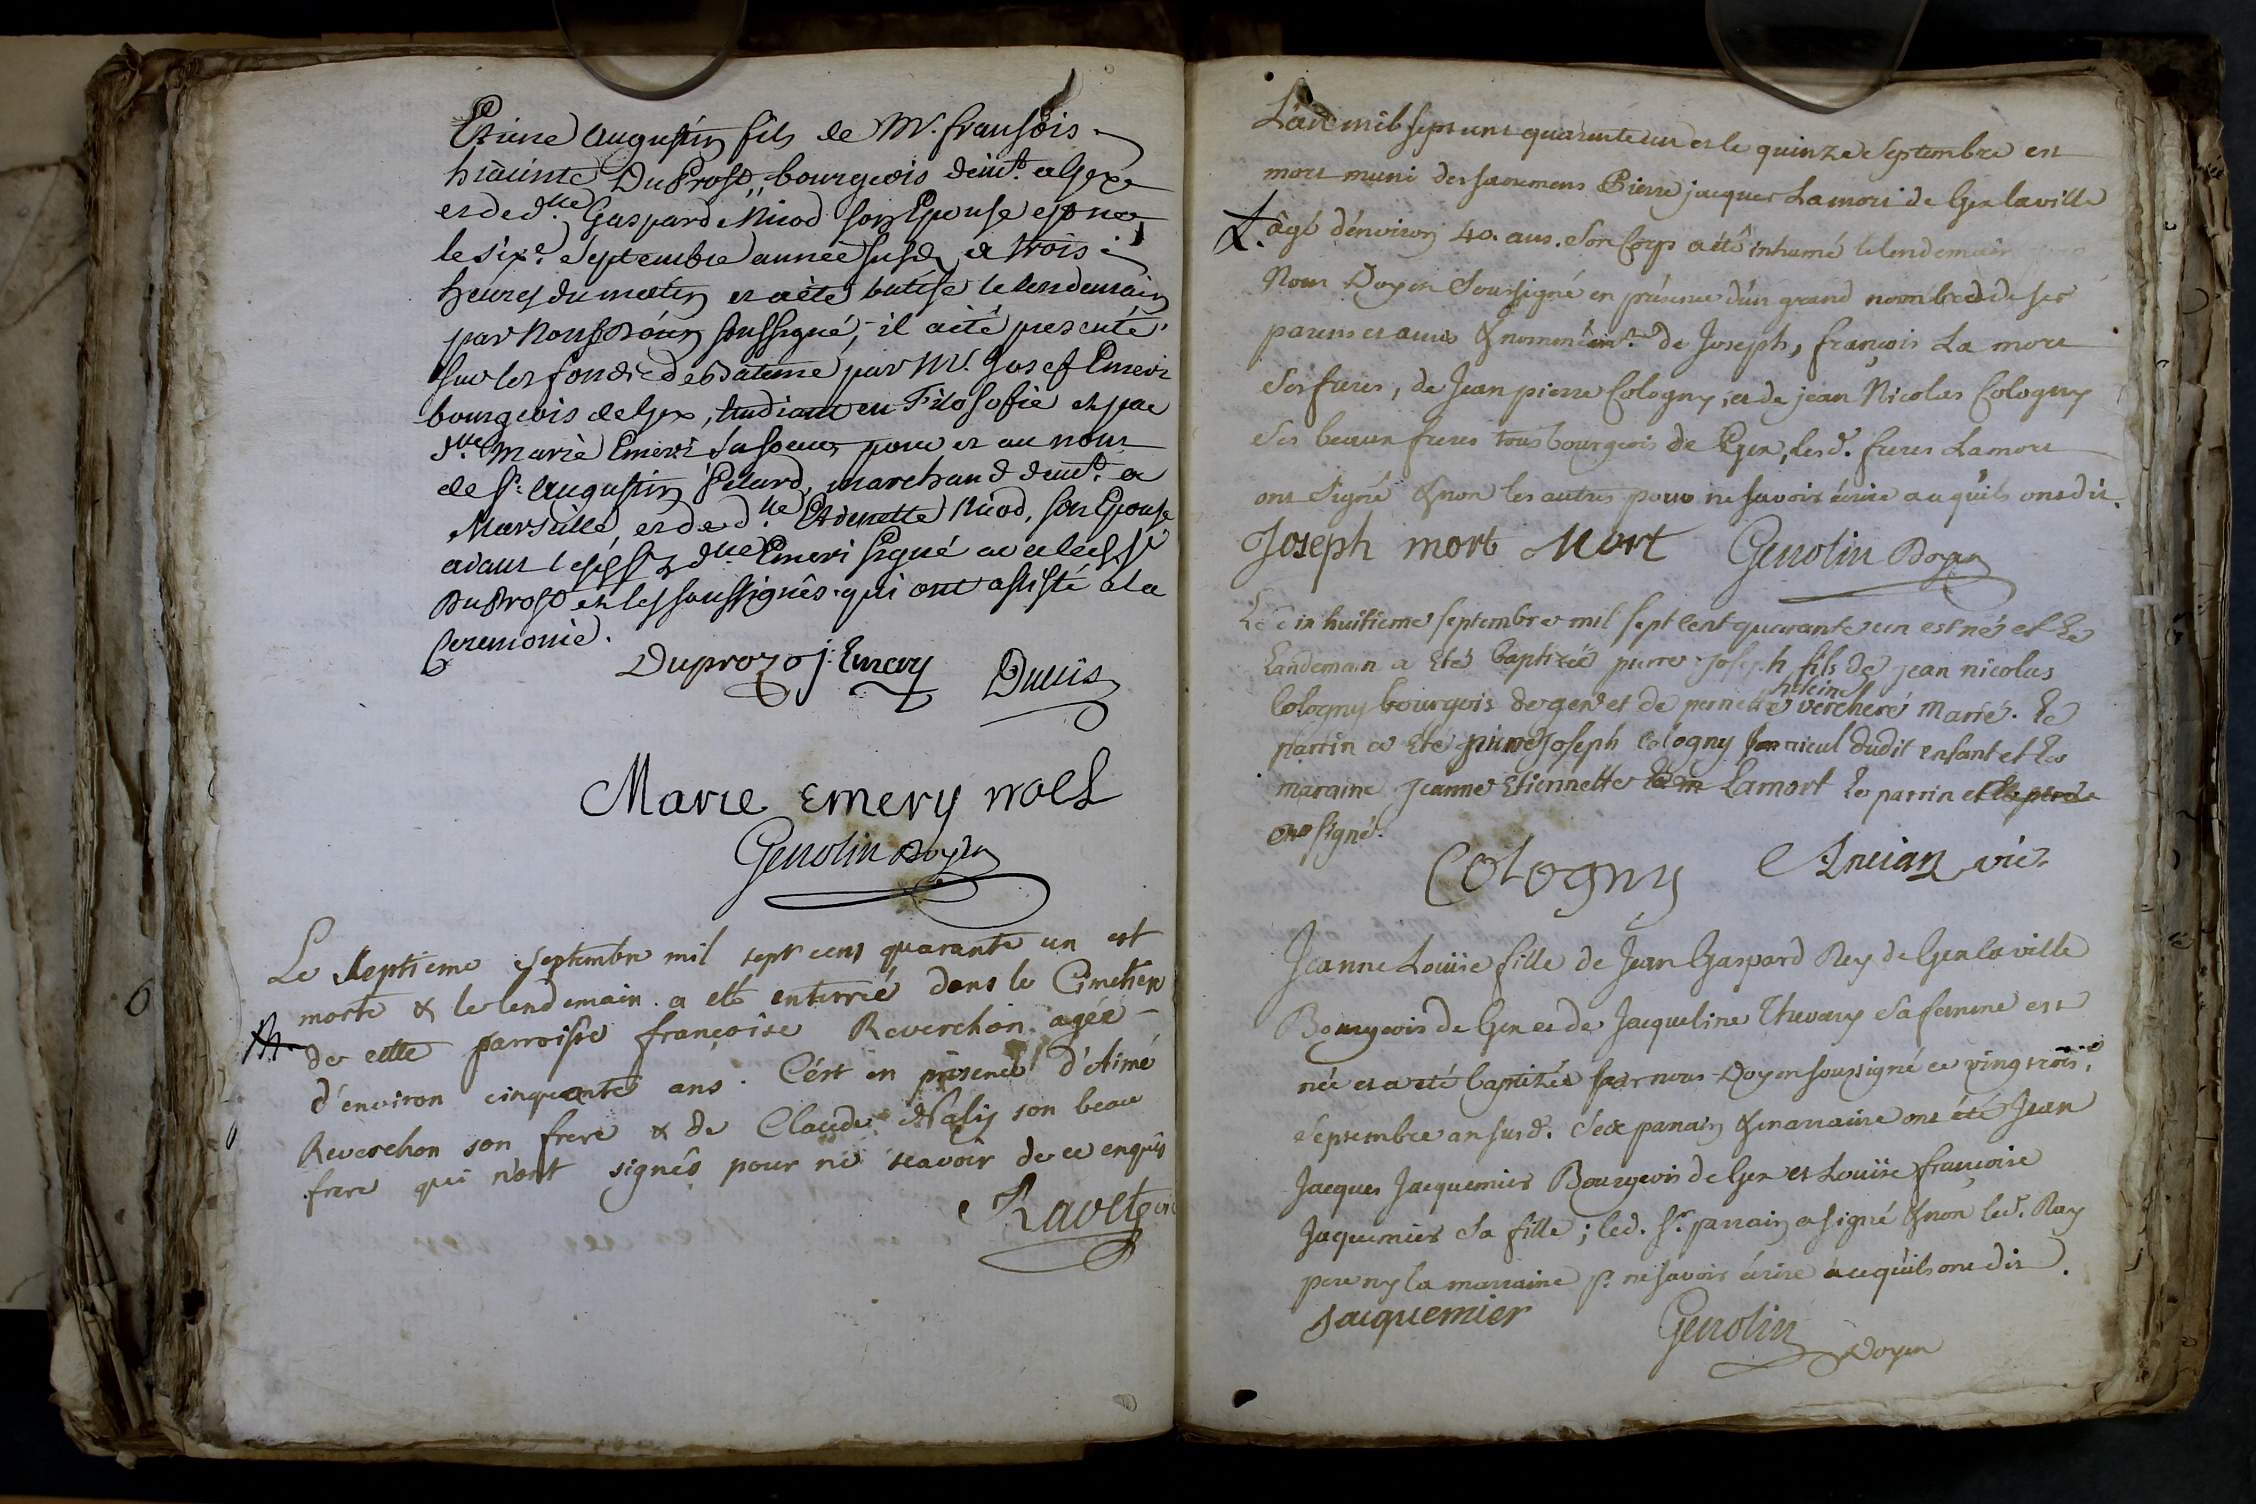 Etiene Augustin fils de Mr. fransois
hiacinte DuProst, bourgeois demt. a Gex
et de dlle Gasparde Nicod son Epouse est né
le six.e septembre année susd. a trois
heures du matin et a été batisé le lendemain
par Nous Doien soussigné, il a eté presenté
sur les fonds de Bateme par Mr. Josef Emeri
bourgeois de Gex, étudiant en Filosofie et par
dlle Marie Emeri sa soeur pour et au nom
de Sr. Augustin Pelard, marchand demt. a
Marseille, et de dlle Etienette Nicod, son Epouse
aiant lesd. Sr. & dlle Emeri signé avec led. Sr.
DuProst et les soussignés qui ont assisté a la
Ceremonie.
Duprozo j. Emery
Marie Emery noel
Genolin Doyen
Le septieme septembre mil sept cens quarante un est
morte & le lendemain a eté enterrée dans le Cimetiere
de cette parroisse françoise Reverchon agée
d'environ cinquante ans. C'ést en présence d'Aimé
Reverchon son frere & de Claude son beau
frere qui n'ont signés pour ne scavoir de ce enquis
L'an mil sept cent quarante un et le quinze Septembre est
mort muni des sacremens Pierre jacques Lamort de Gex la ville
âgé d'environ 40. ans. Son Corps a été inhumé le lendemain
Nous Doyen Soussigné en présence d'un grand nombre de ses
parens et amis & nommément de Joseph, françois La mort
Ses freres, de Jean pierre Cologny, et de jean Nicolas Cologny
Ses beaux freres tous bourgeois de Gex, lesd. freres Lamort
ont Signé & non les autres pour ne savoir écrire a ce qu'ils ont dit.
Joseph mort Mort Genolin Doyen
Le dix huitieme septembre mil sept cent quarante un est né et le
landemain a eté baptizé pierre joseph fils de jean nicolas
Cologny bourgois de gex et de pernette verchere marié. le
parrin a eté pierre joseph Cologny aieul dudit enfant et la
maraine jeanne Etiennette Lamort le parrin et le pere
ont signé.
Cologny Ancian vic.
Jeanne Louïse fille de Jean Gaspard Rey de Gex la ville
Bourgeois de Gex et de Jacqueline Sa femme est
née et a eté baptizée par nous Doyen soussigné ce vingt trois.e
Septembre an susd. Ses parrain & marraine ont été Jean
Jacques Jacquemier Bourgeois de Gex et Louïse françoise
Jaquemier Sa fille ; led. Sr. parrain a signé & non led. Rey
pere ny la marraine pr. ne savoir écrire a ce qu'ils ont dit.
Jacquemier Genolin
Doyen